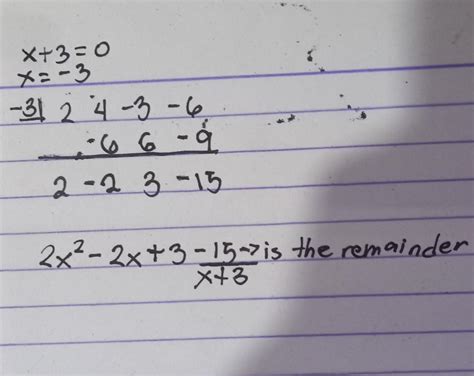 x+3=0
x=-3
-3| 2 4 -3 -6
-6 6 -9
2 -2 3 -15
2x²-2x+3 -15→is the remainder
x+3